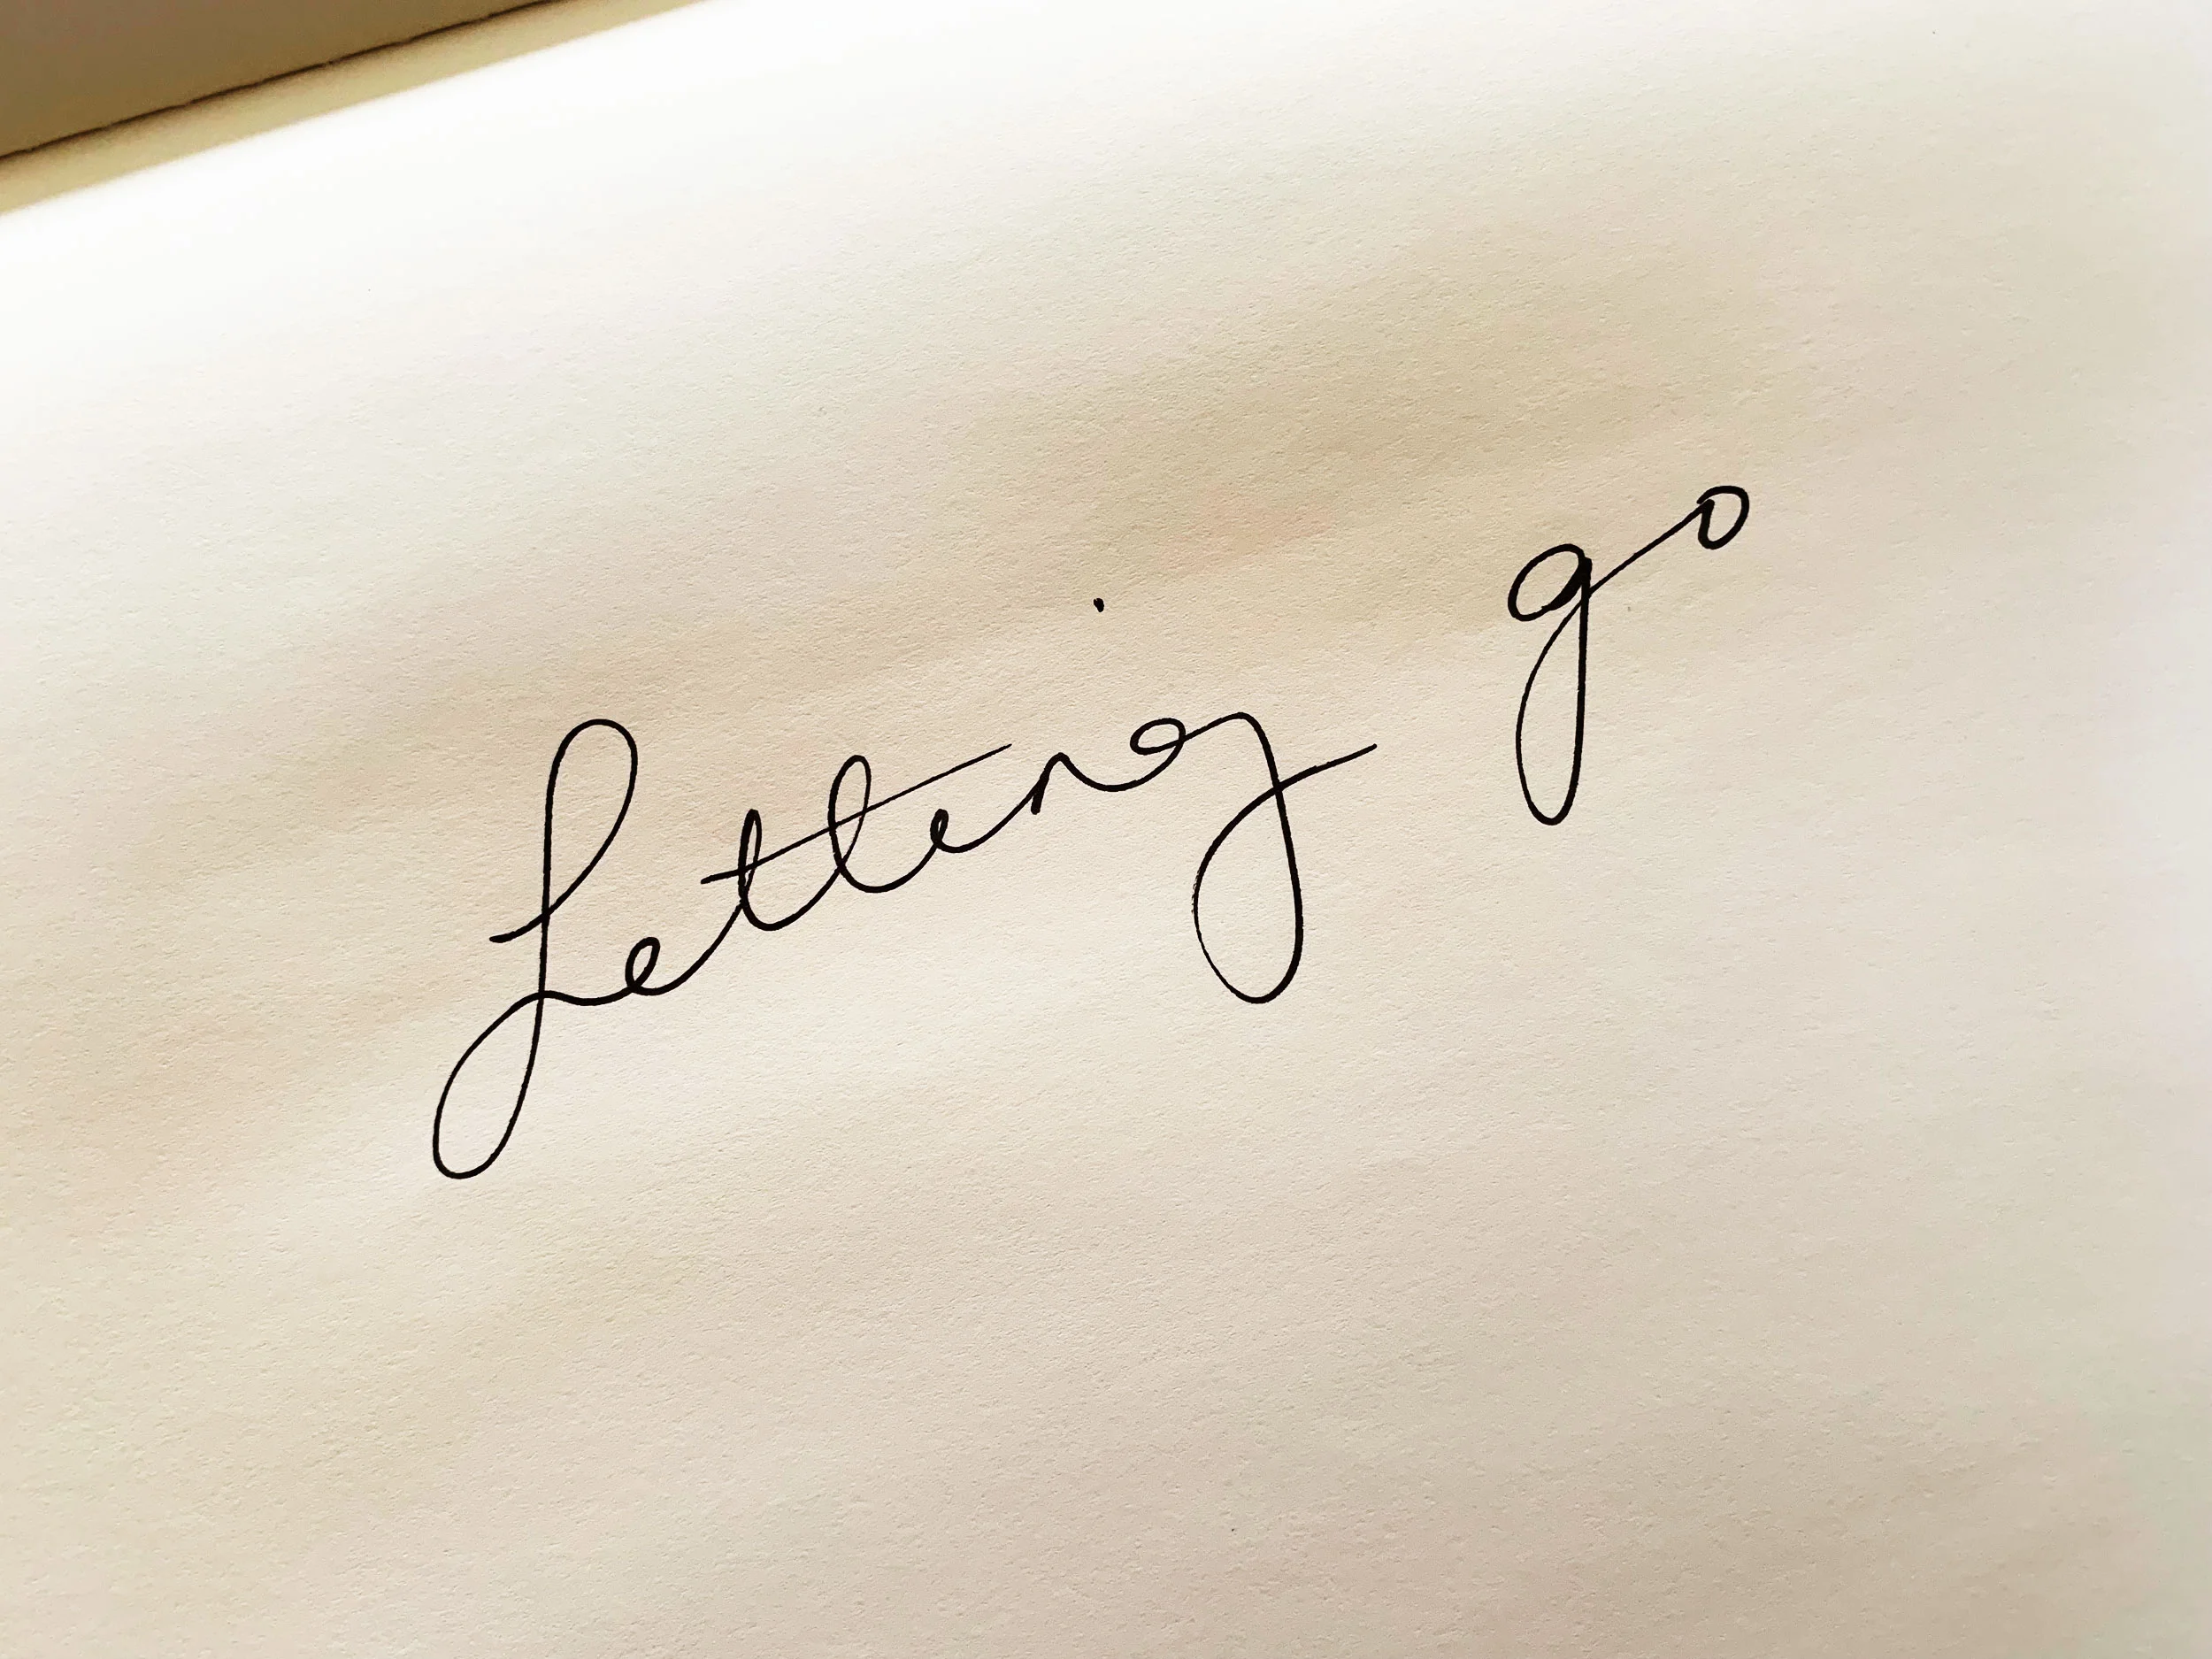 Letting go